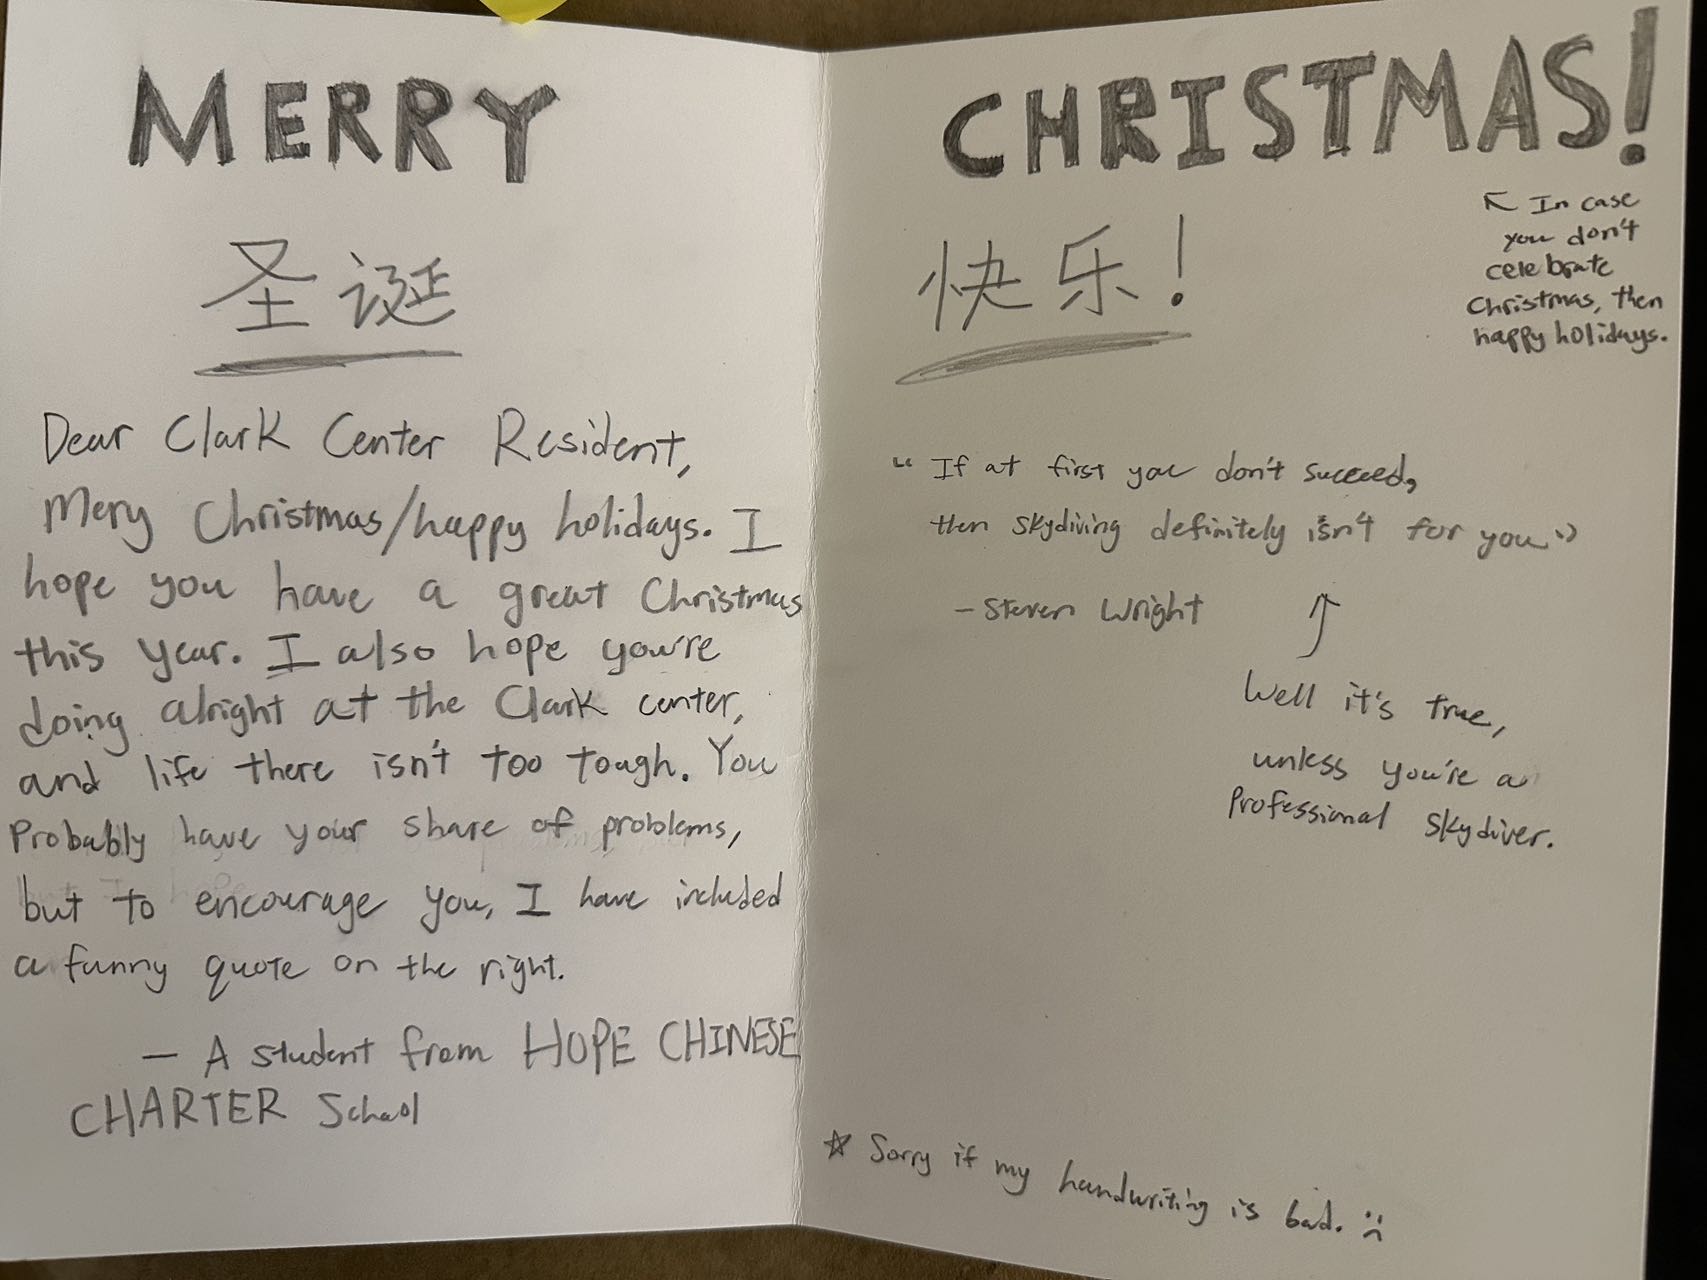 MERRY
圣诞
Dear Clark Center Resident,
Merry Christmas/happy holidays. I
hope you have a great Christmas
this year. I also hope you're
doing alright at the Clark center,
and life there isn't too tough. You
Probably have your share of problems,
but to encourage you, I have included
a funny quote on the right.
— A student from HOPE CHINESE
CHARTER School
CHRISTMAS!
快乐!
↖ In case
you don't
celebrate
Christmas, then
happy holidays.
"If at first you don't succeed,
then skydiving definitely isn't for you"
- Steven Wright
↑
Well it's true,
unless you're a
Professional skydiver.
☆ Sorry if my handwriting is bad. :(